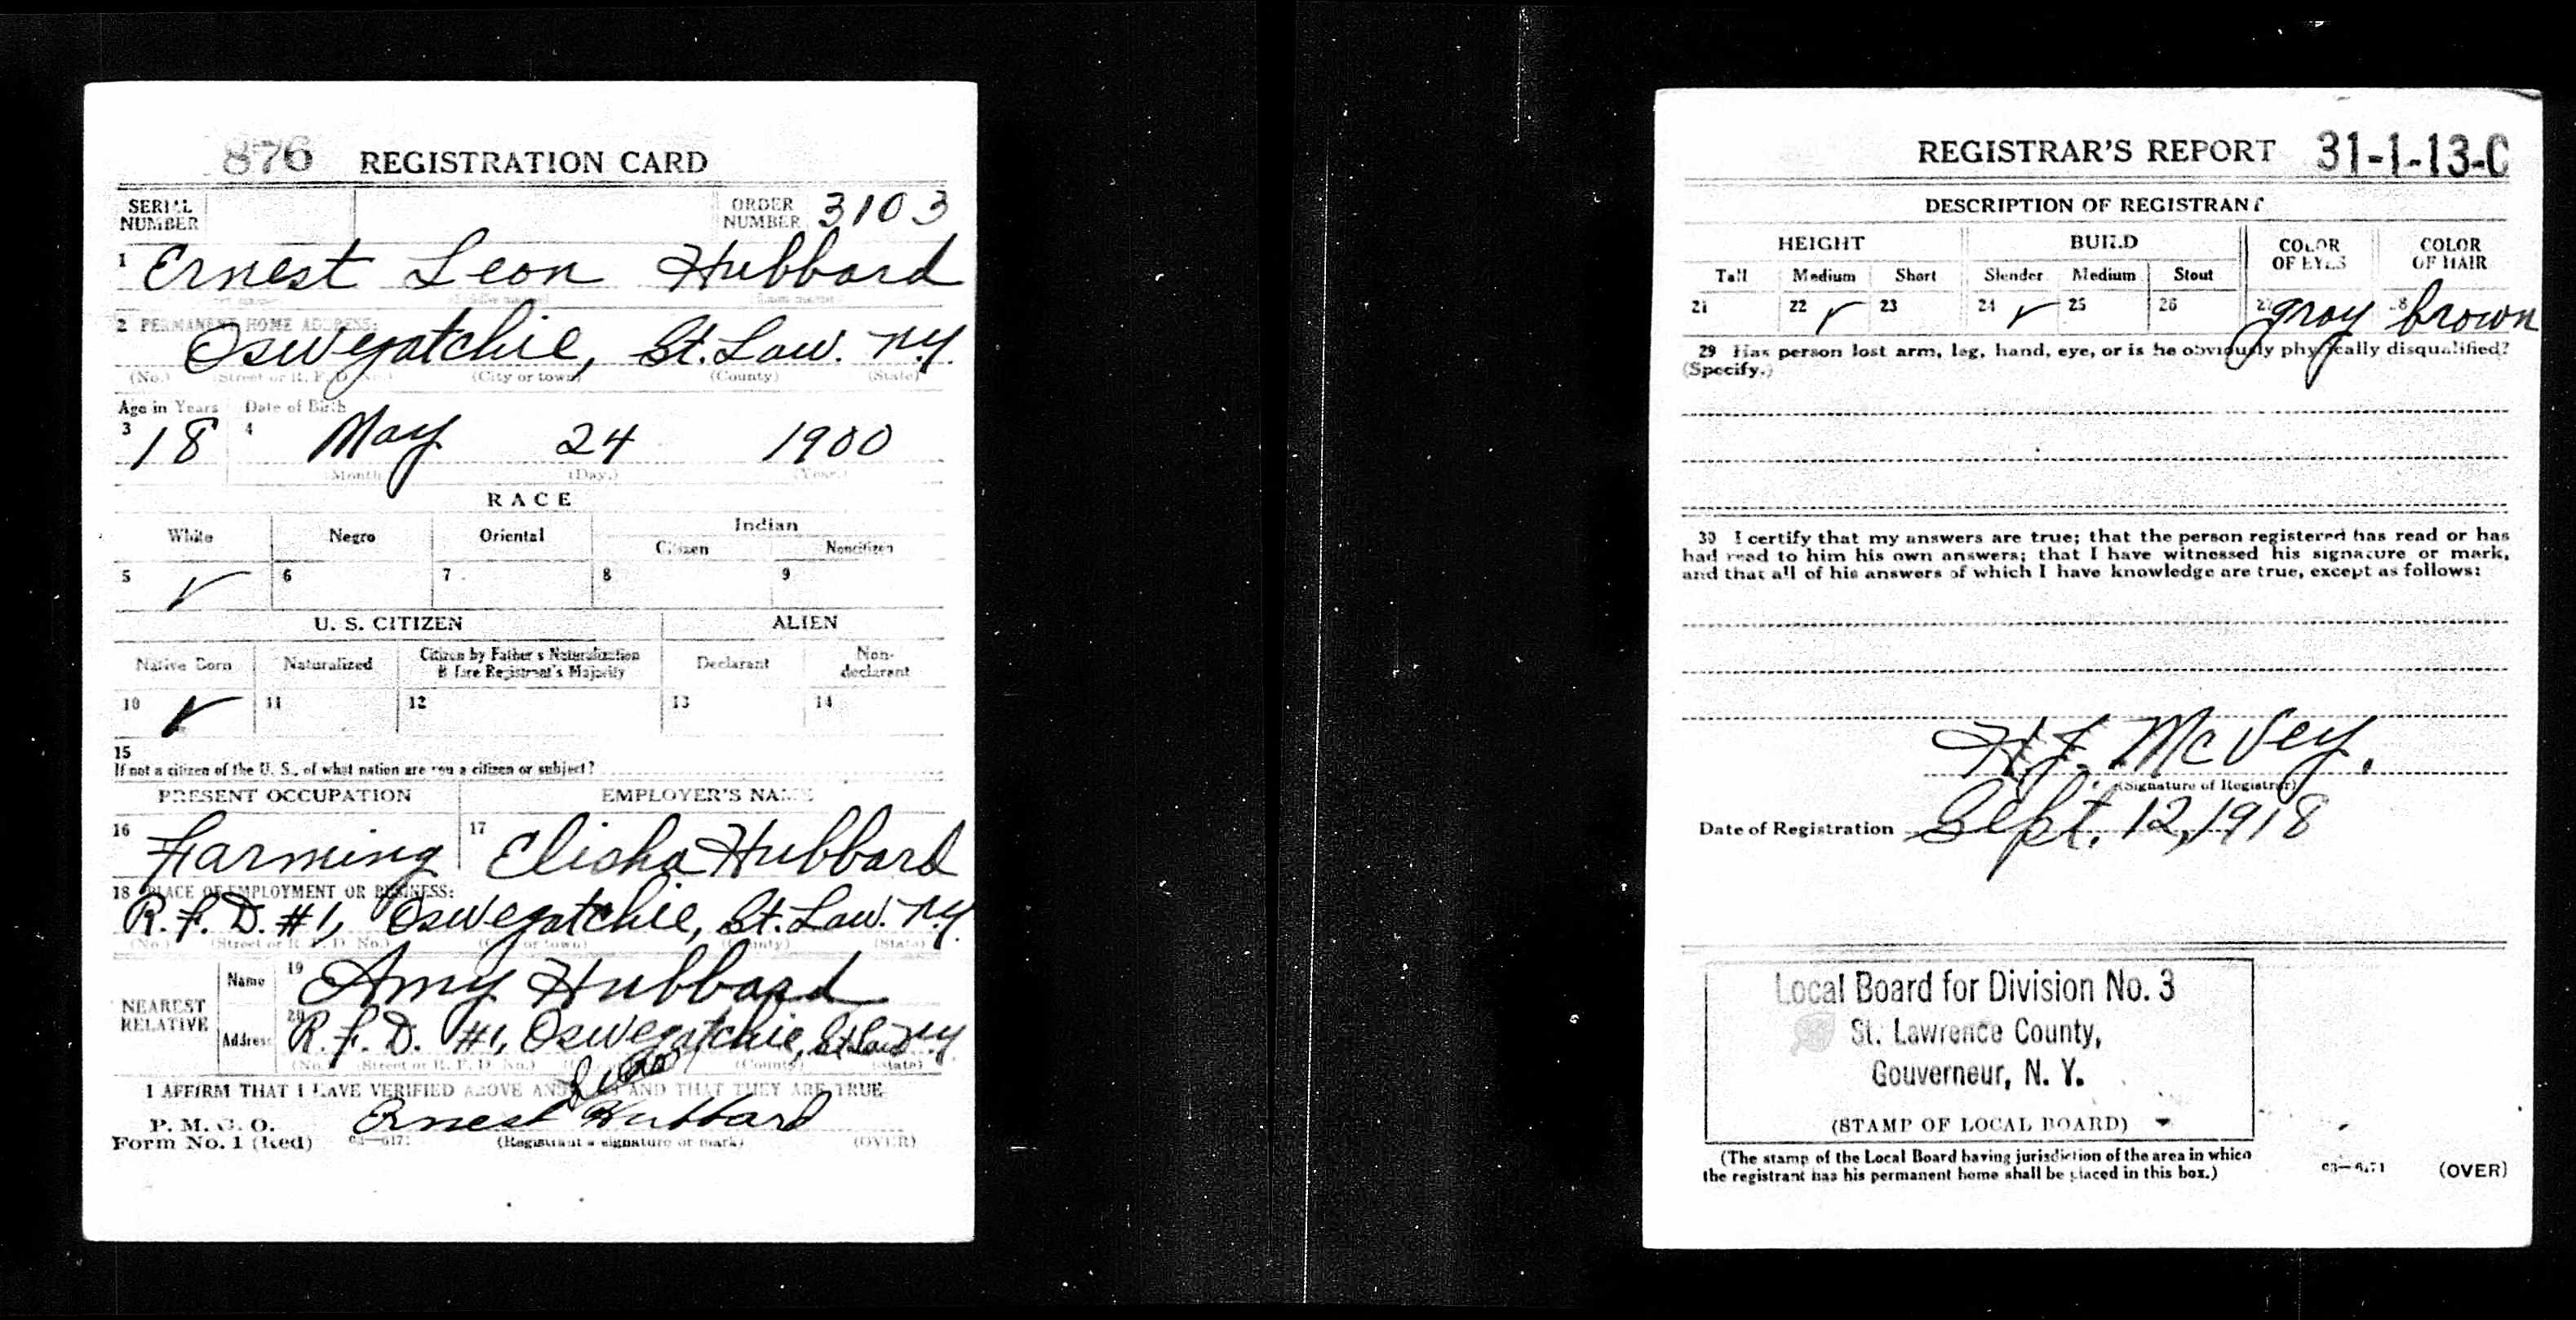 876 REGISTRATION CARD
SERIAL NUMBER ORDER NUMBER 3103
1 Ernest Leon Hubbard
2 PERMANENT HOME ADDRESS:
Oswegatchie, St. Law. N.Y.
(No.) (Street or R. F. D. No.) (City or town) (County) (State)
Age in Years Date of Birth
3 18 4 May 24 1900
(Month) (Day.) (Year.)
RACE
White Negro Oriental Indian
Citizen Noncitizen
5 ✓ 6 7 8 9
U. S. CITIZEN ALIEN
Native Born Naturalized Citizen by Father's Naturalization Before Registrant's Majority Declarant Non-declarant
10 ✓ 11 12 13 14
15
If not a citizen of the U. S., of what nation are you a citizen or subject?
PRESENT OCCUPATION EMPLOYER'S NAME
16 Farming 17 Elisha Hubbard
18 PLACE OF EMPLOYMENT OR BUSINESS:
R. F. D. #1, Oswegatchie, St. Law. N.Y.
(No.) (Street or R. F. D. No.) (City or town) (County) (State)
NEAREST RELATIVE
Name 19 Amy Hubbard
Address 20 R. F. D. #1, Oswegatchie, St Law N.Y
(No.) (Street or R. F. D. No.) (County) (State)
I AFFIRM THAT I HAVE VERIFIED ABOVE AND THAT THEY ARE TRUE
P. M. G. O.
Form No. 1 (Red) Ernest Leon Hubbard
(Registrant's signature or mark) (OVER)
REGISTRAR'S REPORT 31-1-13-C
DESCRIPTION OF REGISTRANT
HEIGHT BUILD COLOR OF EYES COLOR OF HAIR
Tall Medium Short Slender Medium Stout
21 22 ✓ 23 24 ✓ 25 26 27 gray 28 brown
29 Has person lost arm, leg, hand, eye, or is he obviously physically disqualified?
(Specify.)
30 I certify that my answers are true; that the person registered has read or has
had read to him his own answers; that I have witnessed his signature or mark,
and that all of his answers of which I have knowledge are true, except as follows:
H.J. McVey.
(Signature of Registrar)
Date of Registration Sept. 12, 1918
Local Board for Division No. 3
St. Lawrence County,
Gouverneur, N. Y.
(STAMP OF LOCAL BOARD)
(The stamp of the Local Board having jurisdiction of the area in which
the registrant has his permanent home shall be placed in this box.)
03—6171 (OVER)